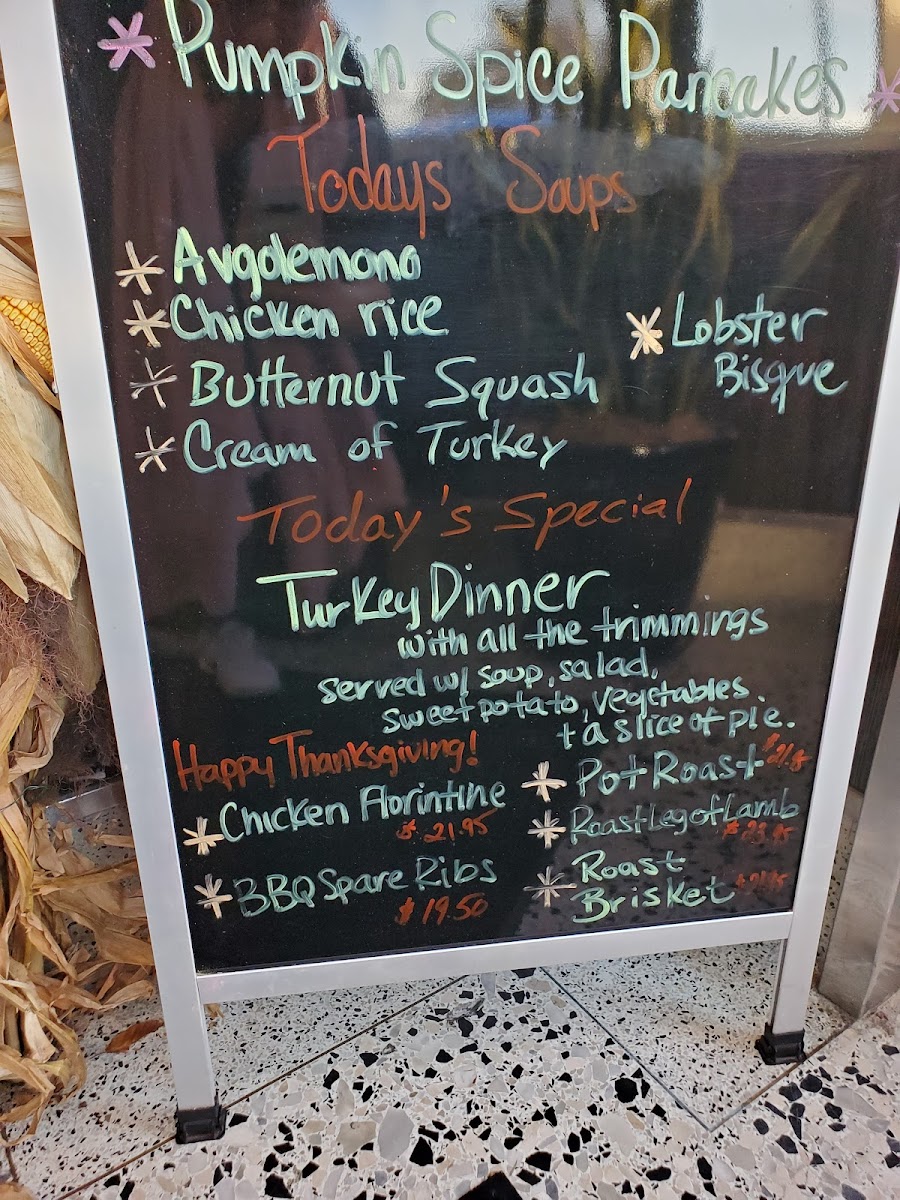 * Pumpkin Spice Pancakes *
Todays Soups
* Avgolemono
* Chicken rice
* Lobster
Bisque
* Butternut Squash
* Cream of Turkey
Today's Special
Turkey Dinner
with all the trimmings
served w/ soup, salad,
sweet potato, vegetables
+ a slice of pie.
Happy Thanksgiving!
* Chicken Florintine
$21.95
* BBQ Spare Ribs
$19.50
* Pot Roast
* Roast Leg of Lamb
* Roast
Brisket